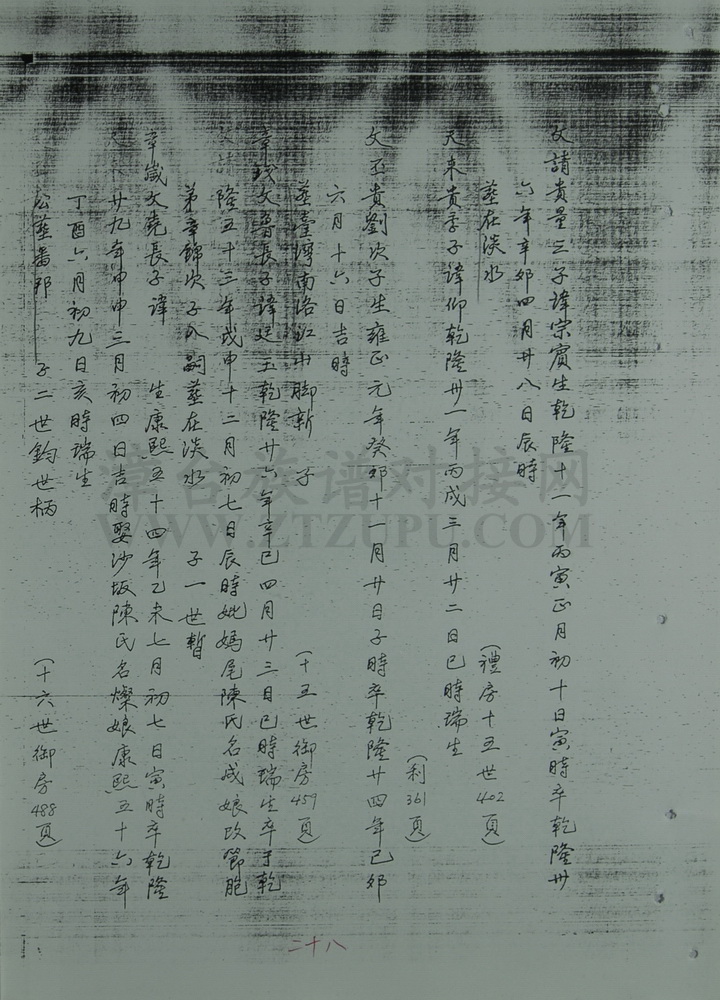 文請貴量三子諱宗賓生乾隆十一年丙寅正月初十日寅時卒乾隆卅
六年辛卯四月廿八日辰時
葬在淡水
(禮房十五世402頁)
天來貴季子諱仰乾隆卅一年丙戌三月廿二日巳時瑞生
(利361頁)
文丕貴劉次子生雍正元年癸卯十一月廿日子時卒乾隆廿四年己卯
六月十六日吉時
葬臺灣南路紅山脚新 子
(十五世御房459頁)
章錢文魯長子諱廷玉乾隆廿六年辛巳四月廿三日巳時瑞生卒于乾
隆五十三年戊申十二月初七日辰時妣媽尾陳氏名成娘改節胞
弟章錦次子入嗣葬在淡水 子一世暫
章歲文堯長子諱 生康熙五十四年乙未七月初七日寅時卒乾隆
廿九年甲申三月初四日吉時娶沙坂陳氏名燦娘康熙五十六年
丁酉六月初九日亥時瑞生
公葬番邦 子二世鈞世柄
(十六世御房488頁)
二十八
漳台族谱对接网
WWW.ZTZUPU.COM